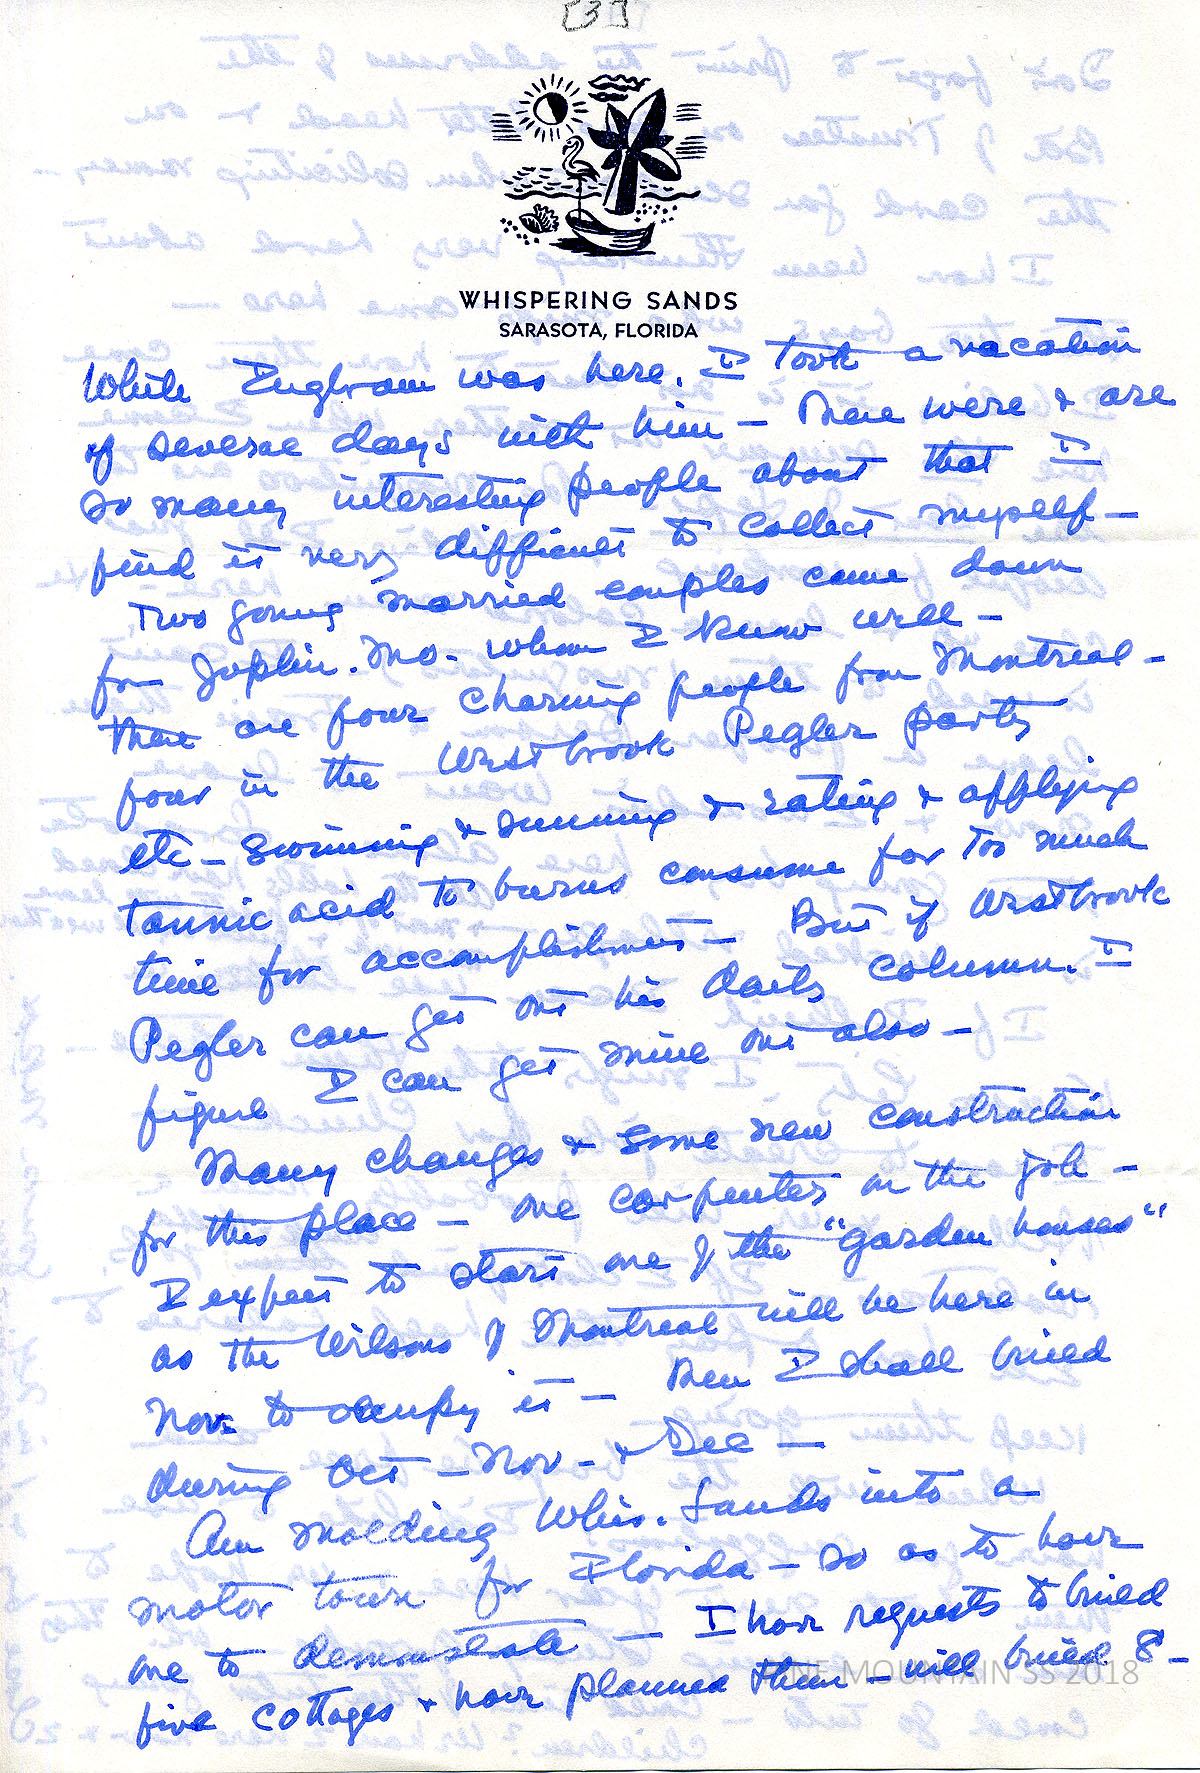 [3]
WHISPERING SANDS
SARASOTA, FLORIDA
While Zughram was here. I took a vacation
of several days with him – There were & are
so many interesting people about that I
find it very difficult to collect myself –
Two young married couples came down
from Joplin. Mo. whom I know well –
There are four charming people from Montreal –
four in the Westbrook Pegler party
etc – swimming & sunning & eating & applying
tannic acid to burns consume far too much
time for accomplishment – But if Westbrook
Pegler can get out his daily column. I
figure I can get mine out also –
Many changes & some new construction
for this place – one carpenter on the job –
I expect to start one of the "garden houses"
as the Wilsons of Montreal will be here in
Nov. to occupy it – Then I shall build
during Oct – Nov – & Dec –
Am molding Whis. Sands into a
motor town for Florida – so as to have
one to demonstrate – I have requests to build
five cottages & have planned them – will build 8 –
PINE MOUNTAIN SS 2018